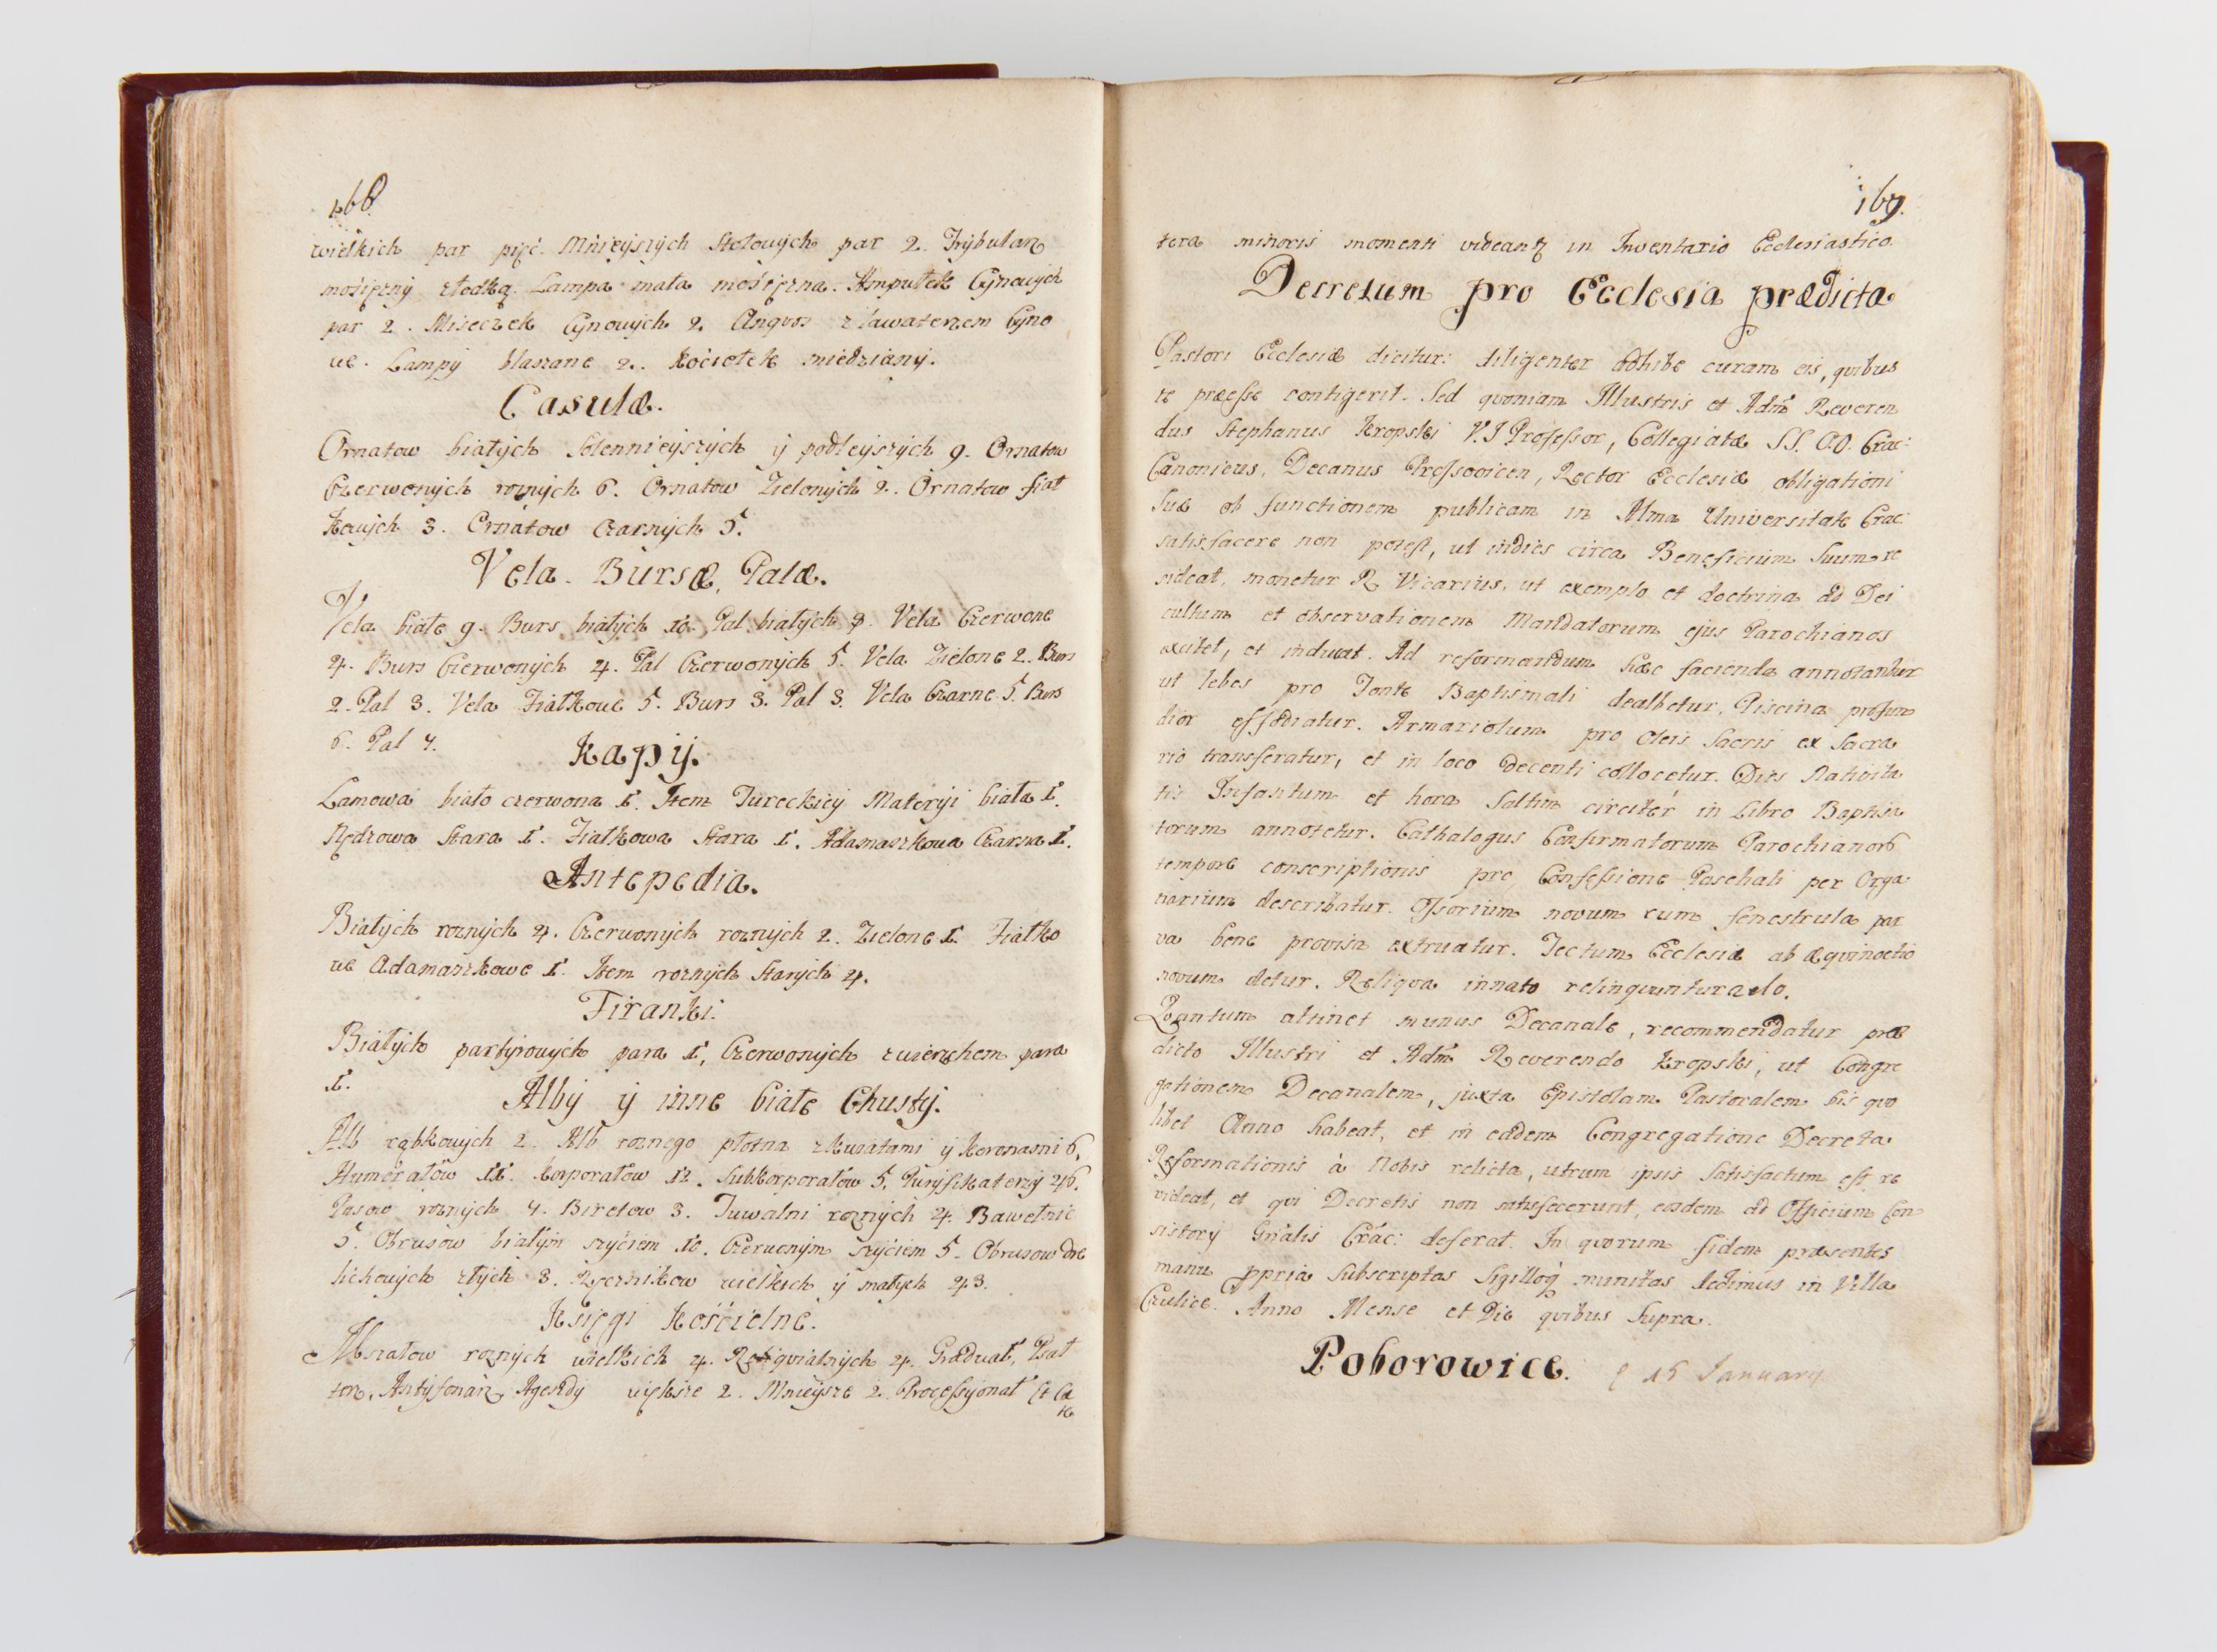 168.
wielkich par pięć. Mnieyszych Stołowych par 2. Trybularz
mosiężny złodką. Lampa mała mosiężna. Ampułek Cynowych
par 2. Miseczek Cynowych 2. Angvos z lawaterzem Cyno
we. Lampy blaszane 2. Kociełek miedziany.
Casulæ.
Ornatow białych Solennieyszych y podleyszych 9. Ornatow
Czerwonych roznych 6. Ornatow Zielonych 2. Ornatow fiał
kowych 3. Ornatow Czarnych 5.
Vela. Bursæ, Palæ.
Vela białe 9. Burs białych 10. Pal białych 9. Vela Czerwone
4. Burs Czerwonych 4. Pal Czerwonych 5. Vela Zielone 2. Burs
2. Pal 3. Vela Fiałkowe 5. Burs 3. Pal 3. Vela Czarne 5. Burs
6. Pal 4.
Kapy.
Lamowa biało czerwona 1. Item Tureckiey Materyi biała 1.
Rędzowa Stara 1. Fiałkowa Stara 1. Adamaszkowa Czarna 1.
Antepedia.
Białych roznych 4. Czerwonych roznych 2. Zielone 1. Fiałko
we Adamaszkowe 1. Item roznych Starych 4.
Firanki.
Białych partyrowych para 1, Czerwonych zwierzchem para
1.
Alby y inne białe Chusty.
Alb rąbkowych 2. Alb roznego płotna zkwiatami y koronasni 6,
Humerałow 11. Korporałow 12. Subkorporałow 5. Puryfikaterzy 46.
Pasow roznych 4. Biretow 3. Tuwalni roznych 4. Bawełnic
5. Obrusow białym szyciem 10. Czerwonym szyciem 5. Obrusow dre
lichowych złych 3. Ręcznikow wielkich y małych 43.
Księgi Kościelne.
Mszałow roznych wielkich 4. Reqvialnych 4. Graduał, Psał
terz, Antyfonarz, Agendy więksże 2. Mnieysze 2. Processyonał Et Cæ
te
169.
tera minoris momenti videantur in Inventario Ecclesiastico.
Decretum pro Ecclesia prædicta
Pastori Ecclesiæ dicitur: diligenter adhibe curam eis, quibus
te præesse contigerit. Sed quoniam Illustris et Adm Reveren
dus Stephanus Kropski V.J Professor, Collegiatæ SS. O.O. Crac:
Canonicus, Decanus Prossovicen, Rector Ecclesiæ obligationi
Suæ ob functionem publicam in Alma Universitate Crac:
satisfacere non potest, ut indies circa Beneficium Suum re
sideat, monetur R Vicarius, ut exemplo et doctrina ad Dei
cultum et observationem Mandatorum ejus Parochianos
excitet, et inducat. Ad reformandum hæc facienda annotantur
ut lebes pro Fonte Baptismali dealbetur, Piscina profun
dior effodiatur. Armariolum pro Oleis Sacris ex Sacra
rio transferatur, et in loco decenti collocetur. Dies Nativita
tis Infantum et hora Saltim circiter in Libro Baptisa
torum annotetur. Cathalogus Confirmatorum Parochianorum
tempore conscriptionis pro Confessione Paschali per Orga
narium describatur. Ossorium novum cum fenestrula par
va bene provisa extruatur. Tectum Ecclesiæ ab æquinoctio
novum detur. Reliqva innato relinqvuntur zelo.
Qvantum attinet munus Decanale, recommendatur præ
dicto Illustri et Adm Reverendo Kropski, ut Congre
gationem Decanalem, juxta Epistolam Pastoralem bis qvo
libet Anno habeat, et in eadem Congregatione Decreta
Reformationis à Nobis relicta, utrum ipsis Satisfactum est re
videat, et qvi Decretis non satisfecerunt, eosdem ad Officium Con
sistory Gnalis Crac: deferat. In qvorum fidem præsentes
manu ppria Subscriptas Sigilloq munitas dedimus in Villa
Czulice. Anno Mense et Die qvibus Supra.
Poborowice. 15 January